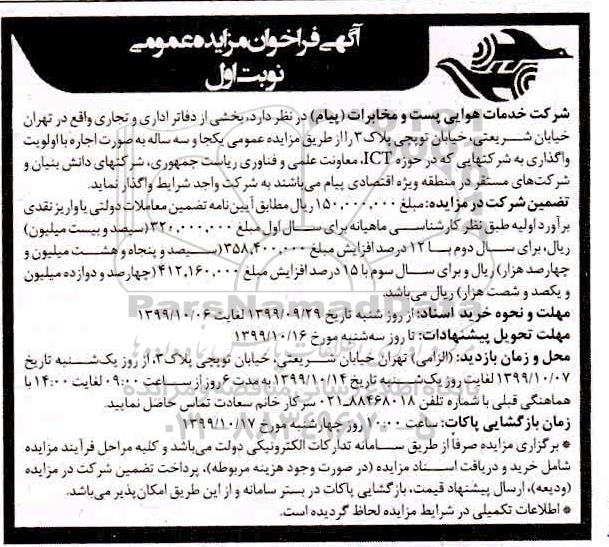 آگهی فراخوان مزایده عمومی
نوبت اول
شرکت خدمات هوایی پست و مخابرات (پیام) در نظر دارد، بخشی از دفاتر اداری و تجاری واقع در تهران
خیابان شریعتی، خیابان توپچی پلاک۳ را از طریق مزایده عمومی یکجا و سه ساله به صورت اجاره با اولویت
واگذاری به شرکتهایی که در حوزه ICT، معاونت علمی و فناوری ریاست جمهوری، شرکتهای دانش بنیان و
شرکت‌های مستقر در منطقه ویژه اقتصادی پیام می‌باشند به شرکت واجد شرایط واگذار نماید.
تضمین شرکت در مزایده: مبلغ ۱۵۰,۰۰۰,۰۰۰ ریال مطابق آیین نامه تضمین معاملات دولتی یا واریز نقدی
برآورد اولیه طبق نظر کارشناسی ماهیانه برای سال اول مبلغ ۳۲۰,۰۰۰,۰۰۰ (سیصد و بیست میلیون)
ریال، برای سال دوم با ۱۲ درصد افزایش مبلغ ۳۵۸,۴۰۰,۰۰۰ (سیصد و پنجاه و هشت میلیون و
چهارصد هزار) ریال و برای سال سوم با ۱۵ درصد افزایش مبلغ ۴۱۲,۱۶۰,۰۰۰ (چهارصد و دوازده میلیون
و یکصد و شصت هزار) ریال می‌باشد.
مهلت و نحوه خرید اسناد: از روز شنبه تاریخ ۱۳۹۹/۰۹/۲۹ لغایت ۱۳۹۹/۱۰/۰۶
مهلت تحویل پیشنهادات: تا روز سه‌شنبه مورخ ۱۳۹۹/۱۰/۱۶
محل و زمان بازدید: (الزامی) تهران خیابان شریعتی، خیابان توپچی پلاک۳، از روز یکشنبه تاریخ
۱۳۹۹/۱۰/۰۷ لغایت روز یکشنبه تاریخ ۱۳۹۹/۱۰/۱۴ به مدت ۶ روز از ساعت ۰۹:۰۰ لغایت ۱۴:۰۰ با
هماهنگی قبلی با شماره تلفن ۸۸۴۶۸۰۱۸-۰۲۱ سرکار خانم سعادت تماس حاصل نمایید.
زمان بازگشایی پاکات: ساعت ۱۰:۰۰ روز چهارشنبه مورخ ۱۳۹۹/۱۰/۱۷
* برگزاری مزایده صرفاً از طریق سامانه تدارکات الکترونیکی دولت می‌باشد و کلیه مراحل فرآیند مزایده
شامل خرید و دریافت اسناد مزایده (در صورت وجود هزینه مربوطه)، پرداخت تضمین شرکت در مزایده
(ودیعه)، ارسال پیشنهاد قیمت، بازگشایی پاکات در بستر سامانه و از این طریق امکان‌پذیر می‌باشد.
* اطلاعات تکمیلی در شرایط مزایده لحاظ گردیده است.
ParsNamadData
۰۲۱-۸۸۳۴۹۶۷۰